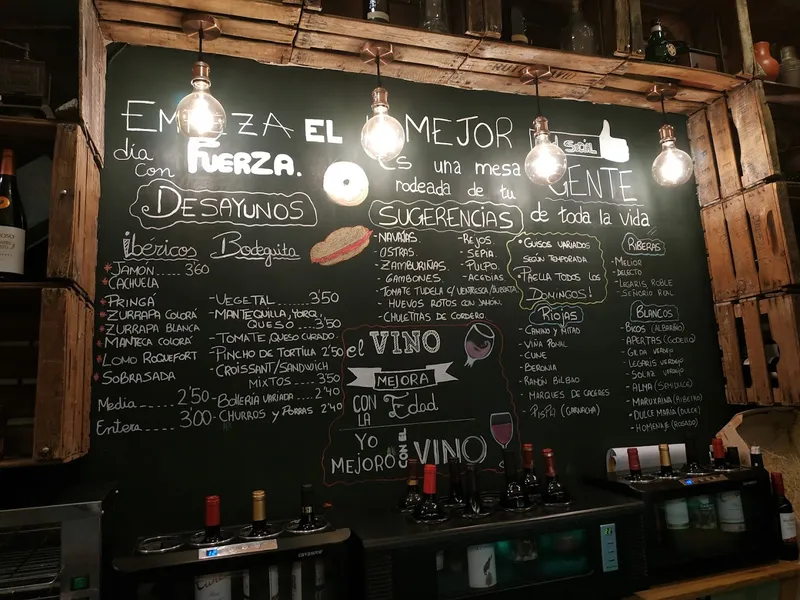 EMPIEZA EL
día
con FUERZA.
MEJOR
es una mesa
rodeada de tu
GENTE
de toda la vida
DESAYUNOS
Ibéricos
JAMÓN..... 3'60
CACHUELA
PRINGÁ
ZURRAPA COLORÁ
ZURRAPA BLANCA
MANTECA COLORÁ
LOMO ROQUEFORT
SOBRASADA
Media....... 2'50
Entera....... 3'00
Bodeguita
-VEGETAL....... 3'50
-MANTEQUILLA, YORQ,
QUESO... 3'50
-TOMATE, QUESO CURADO.
-PINCHO DE TORTILLA 2'50
-CROISSANT/SANDWICH
MIXTOS.... 3'50
-BOLLERÍA VARIADA... 2'40
-CHURROS Y PORRAS 2'40
SUGERENCIAS
-NAVAJAS.
-OSTRAS.
-ZAMBURIÑAS.
-GAMBONES.
-TOMATE TUDELA C/ VENTRESCA/BURRATA
-HUEVOS ROTOS CON JAMÓN.
-CHULETITAS DE CORDERO.
-REJOS.
-SEPIA.
-PULPO.
-ACEDIAS.
•GUISOS VARIADOS
SEGÚN TEMPORADA
•PAELLA TODOS LOS
DOMINGOS!
el VINO
MEJORA
CON
LA Edad
YO
MEJORO CON EL VINO
RIOJAS
-VIÑA POMAL
-CUNE
-BERONIA
-RAMÓN BILBAO
-MARQUES DE CACERES
-PISPA (GARNACHA)
RIBERAS
-MELIOR
-DELECTO
-LEGARIS ROBLE
-SEÑORIO REAL
BLANCOS
-BICOS (ALBARIÑO)
-APERTAS (GODELLO)
-LEGARIS VERDEJO
-SOLAZ VERDEJO
-ALMA (SEMIDULCE)
-MARUXAINA (RIBEIRO)
-DULCE MARÍA (DULCE)
-HOMENAJE (ROSADO)